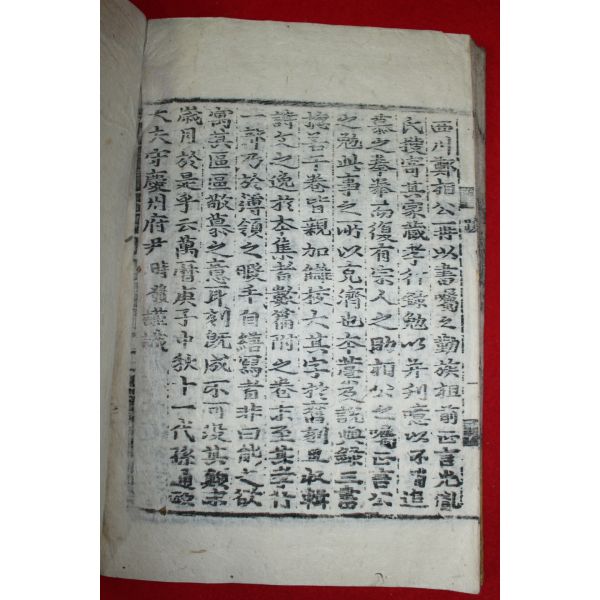 西川鄭相公再以書囑之勤族祖前正言光胤
氏搜寄其家藏孝行錄勉以并刊噫以不肖追
慕之拳拳而復有宗人之助相公之囑正言公
之勉此事之所以克濟也本藁及說與錄三書
摠若干卷皆親加讎校大其字於舊刻且収輯
詩文之逸於本集者數篇附之卷末至其孝行
一部乃於簿領之暇手自繕寫者非曰能之欲
寓其區區敬慕之意耳刻旣成不可沒其顚末
歲月於是乎云萬曆庚子中秋十一代孫通政
大夫守慶州府尹 時發謹識